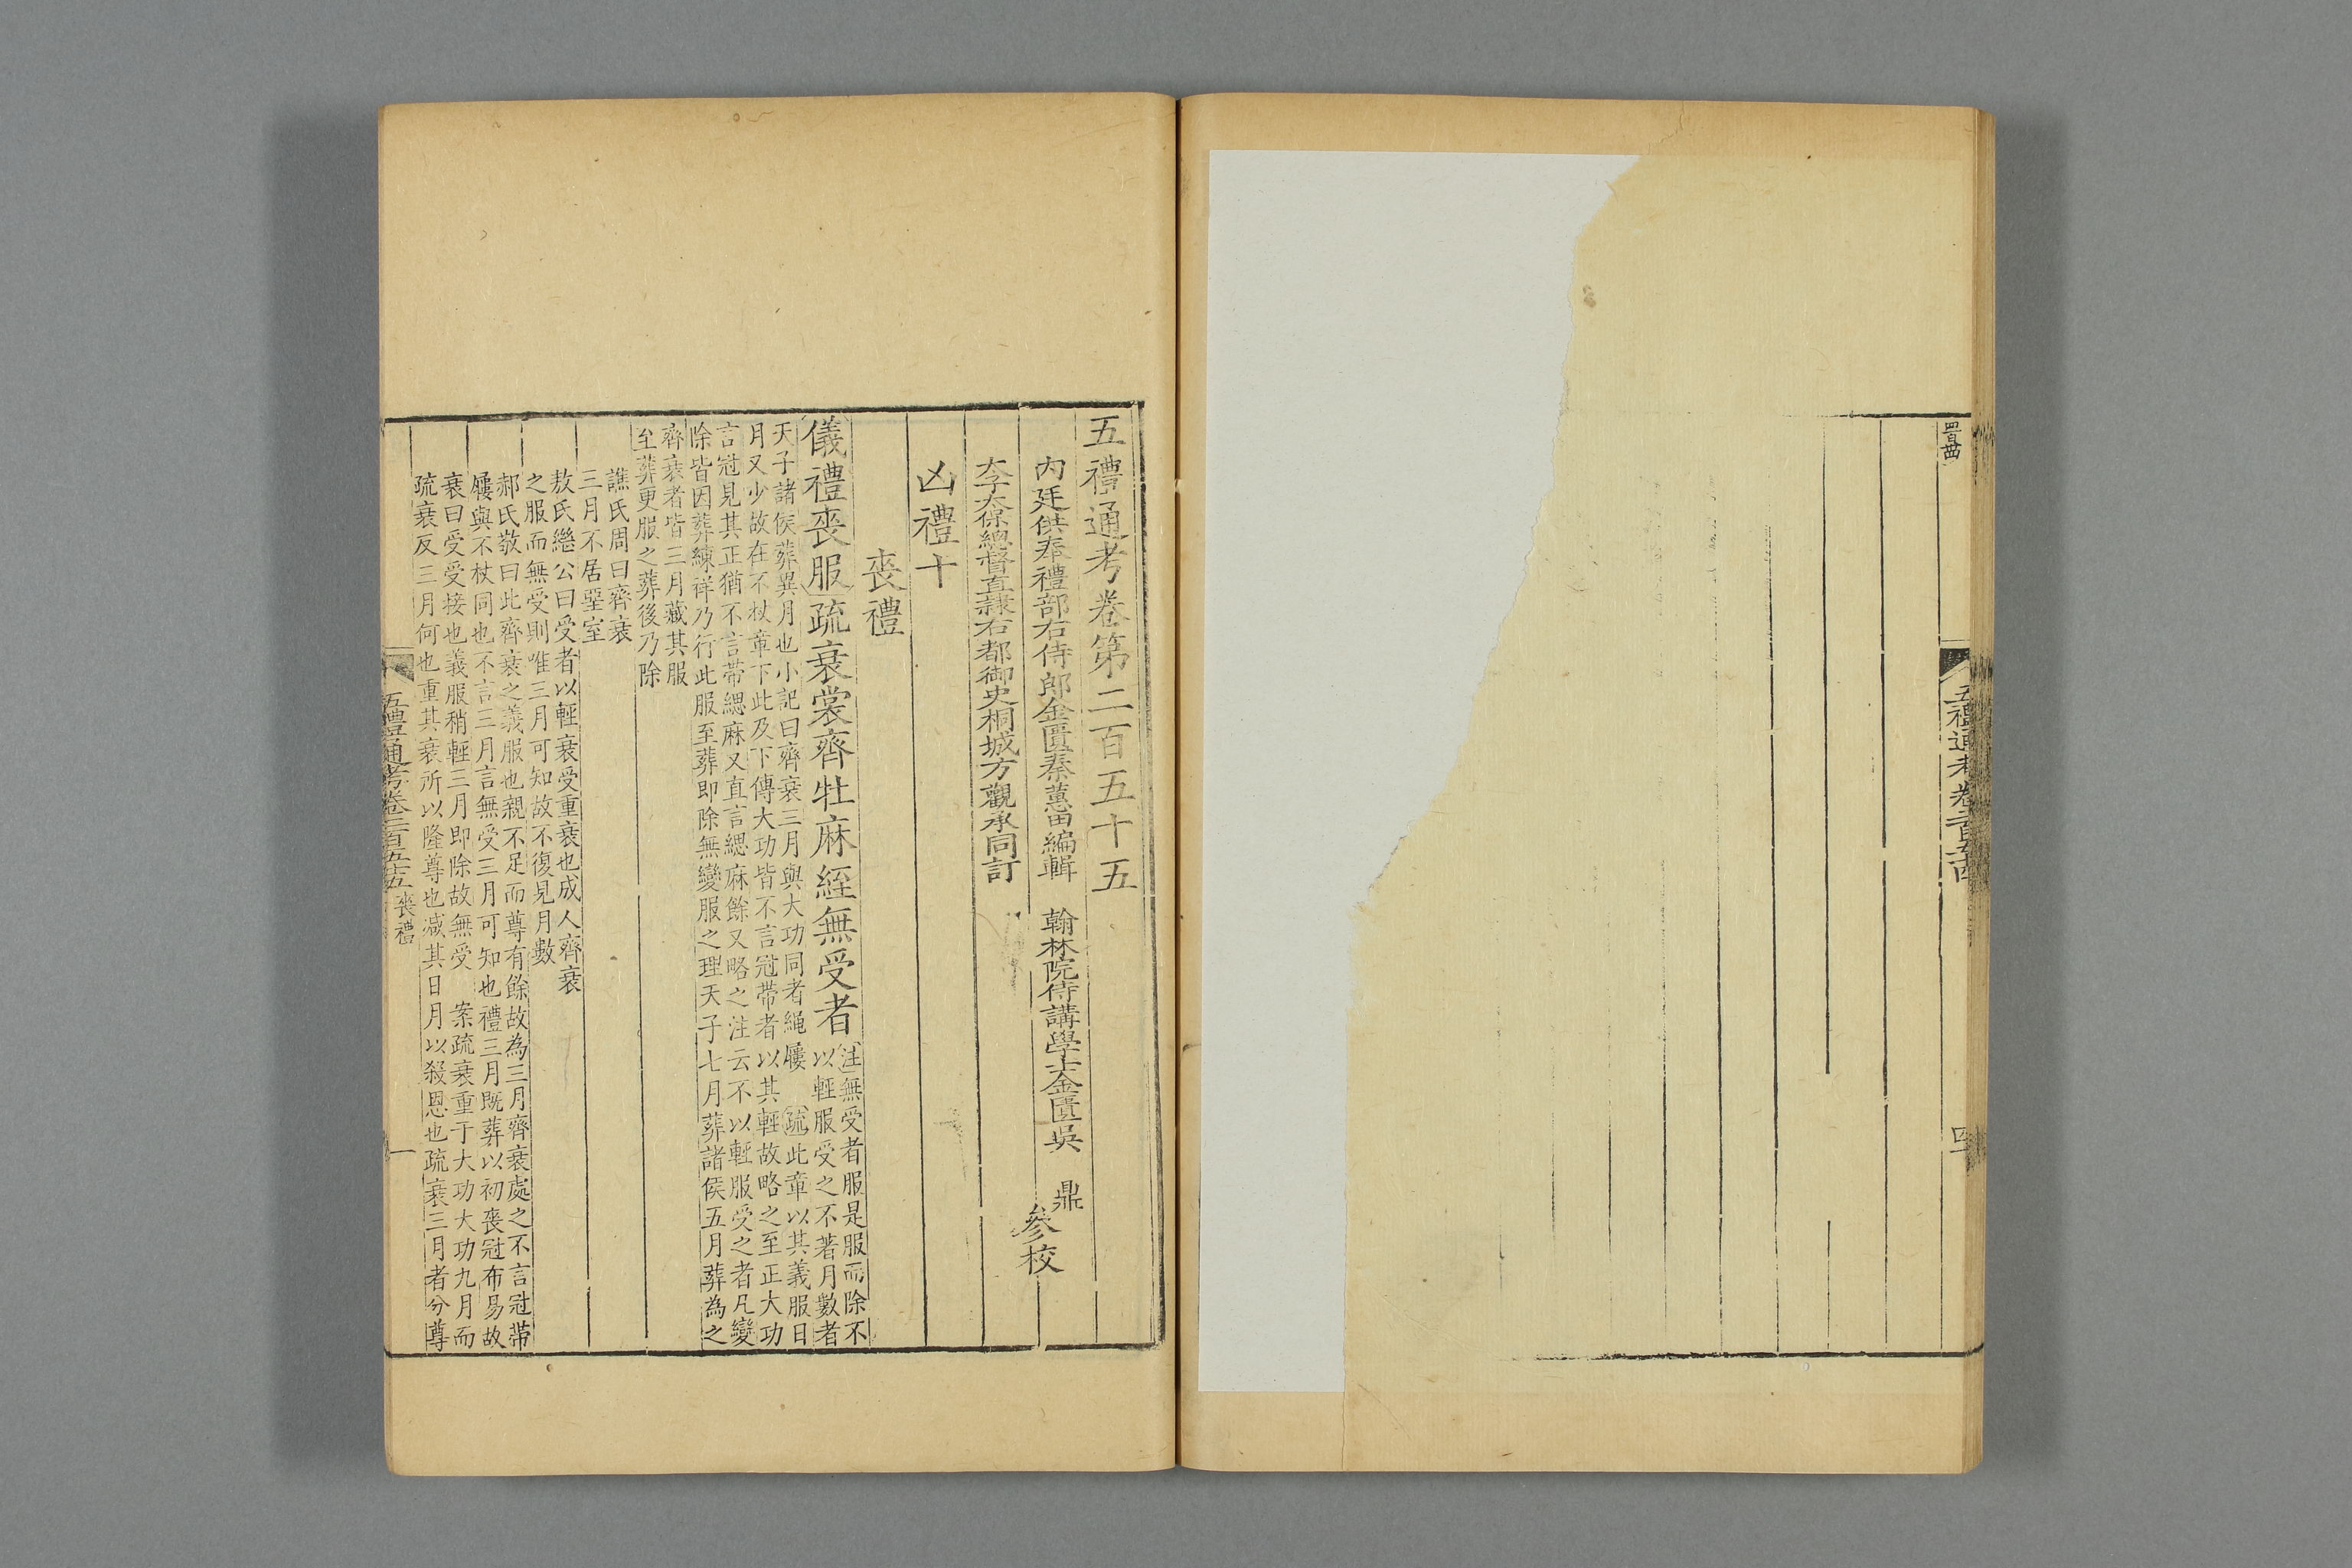 五禮通考卷第二百五十五
內廷供奉禮部右侍郎金匱秦蕙田編輯　翰林院侍講學士金匱吳　鼎
太子太保總督直隸右都御史桐城方觀承同訂　參校
凶禮十
喪禮
儀禮喪服疏衰裳齊牡麻絰無受者
注無受者服是服而除不
以輕服受之不著月數者
天子諸侯葬異月也小記曰齊衰三月與大功同者繩屨　疏此章以其義服日
月又少故在不杖章下此及下傳大功皆不言冠帶者以其輕故略之至正大功
言冠見其正猶不言帶緦麻又直言緦麻餘又略之注云不以輕服受之者凡變
除皆因葬練祥乃行此服至葬即除無變服之理天子七月葬諸侯五月葬為之
齊衰者皆三月藏其服
至葬更服之葬後乃除
譙氏周曰齊衰
三月不居堊室
敖氏繼公曰受者以輕衰受重衰也成人齊衰
之服而無受則唯三月可知故不復見月數
郝氏敬曰此齊衰之義服也親不足而尊有餘故為三月齊衰處之不言冠帶
屨與不杖同也不言三月言無受三月可知也禮三月既葬以初喪冠布易故
衰曰受受接也義服稍輕三月即除故無受　案疏衰重于大功大功九月而
疏衰反三月何也重其衰所以隆尊也减其日月以殺恩也疏衰三月者分尊
五禮通考卷二百五十五　喪禮　一
五禮通考卷二百五十四